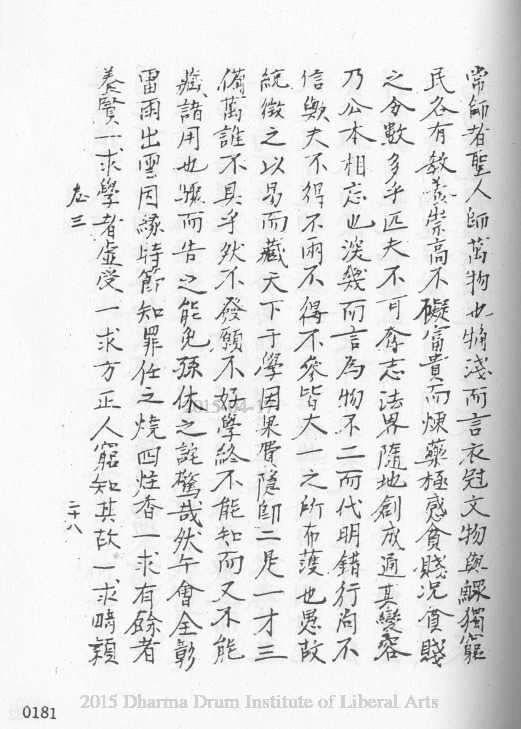 常師者聖人師萬物也犄淺而言衣冠文物與鰥獨窮
民各有教養崇高不礙富貴而煉藥極感貧賤况貧賤
之分數多乎匹夫不可奪志法界隨地創成適其變容
乃公本相忘也淡幾而言為物不二而代明錯行尚不
信歟夫不得不兩不得不參皆大一之所布濩也愚故
統徵之以易而藏天下于學因果費隱即二是一才三
備萬誰不具乎然不發願不好學終不能知而又不能
藏諸用也驟而告之能免孫休之詫驚哉然午會全彰
雷雨出雲因緣時節知罪任之燒四炷香一求有餘者
養賢一求學者虛受一求方正人窮知其故一求畸穎
卷三
二十八
2015-04-1
0181
2015 Dharma Drum Institute of Liberal Arts